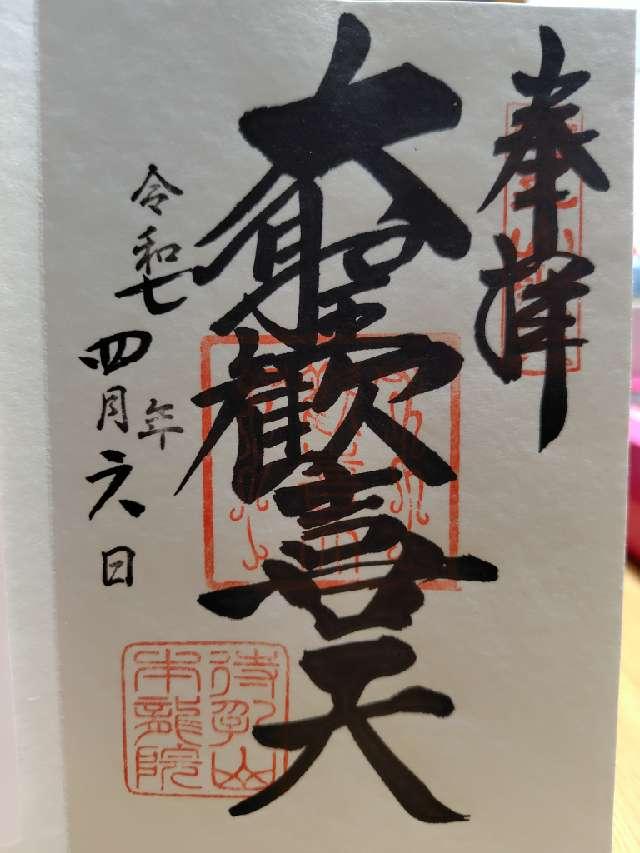 奉拝
大聖歓喜天
令和七年
四月六日
待乳山
本龍院